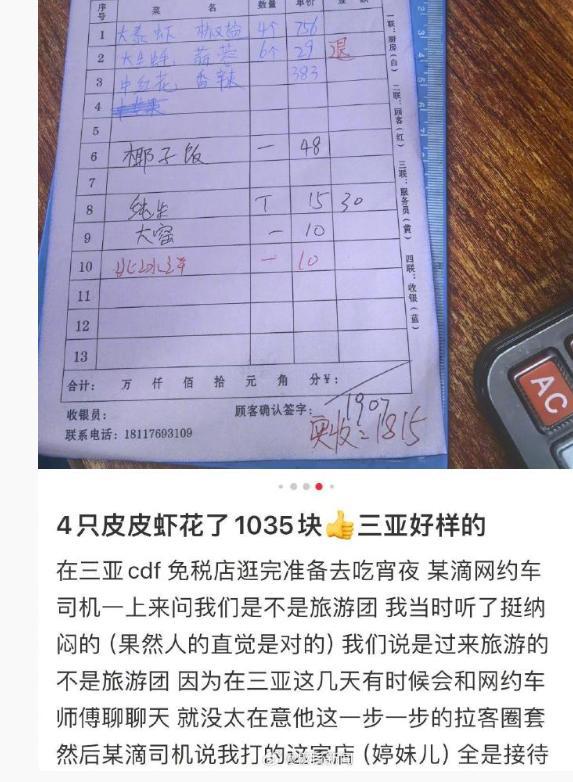 序号 菜 名 数量 单价 金 额
1 4个 756
2 6个 29 退
3 香辣 383
4
5
6 椰子饭 一 48
7
8 纯生 T 15 30
9 大窑 一 10
10 冰 一 10
11
12
13
合计： 万 仟 佰 拾 元 角 分￥：
1907
收银员： 顾客确认签字：
实收=1815
联系电话：18117693109
一联：厨房（白） 二联：顾客（红） 三联：服务员（黄） 四联：收银（蓝）
AC
4只皮皮虾花了1035块👍三亚好样的
在三亚cdf 免税店逛完准备去吃宵夜 某滴网约车
司机一上来问我们是不是旅游团 我当时听了挺纳
闷的（果然人的直觉是对的）我们说是过来旅游的
不是旅游团 因为在三亚这几天有时候会和网约车
师傅聊聊天 就没太在意他这一步一步的拉客圈套
然后某滴司机说我打的这家店（婷妹儿）全是接待